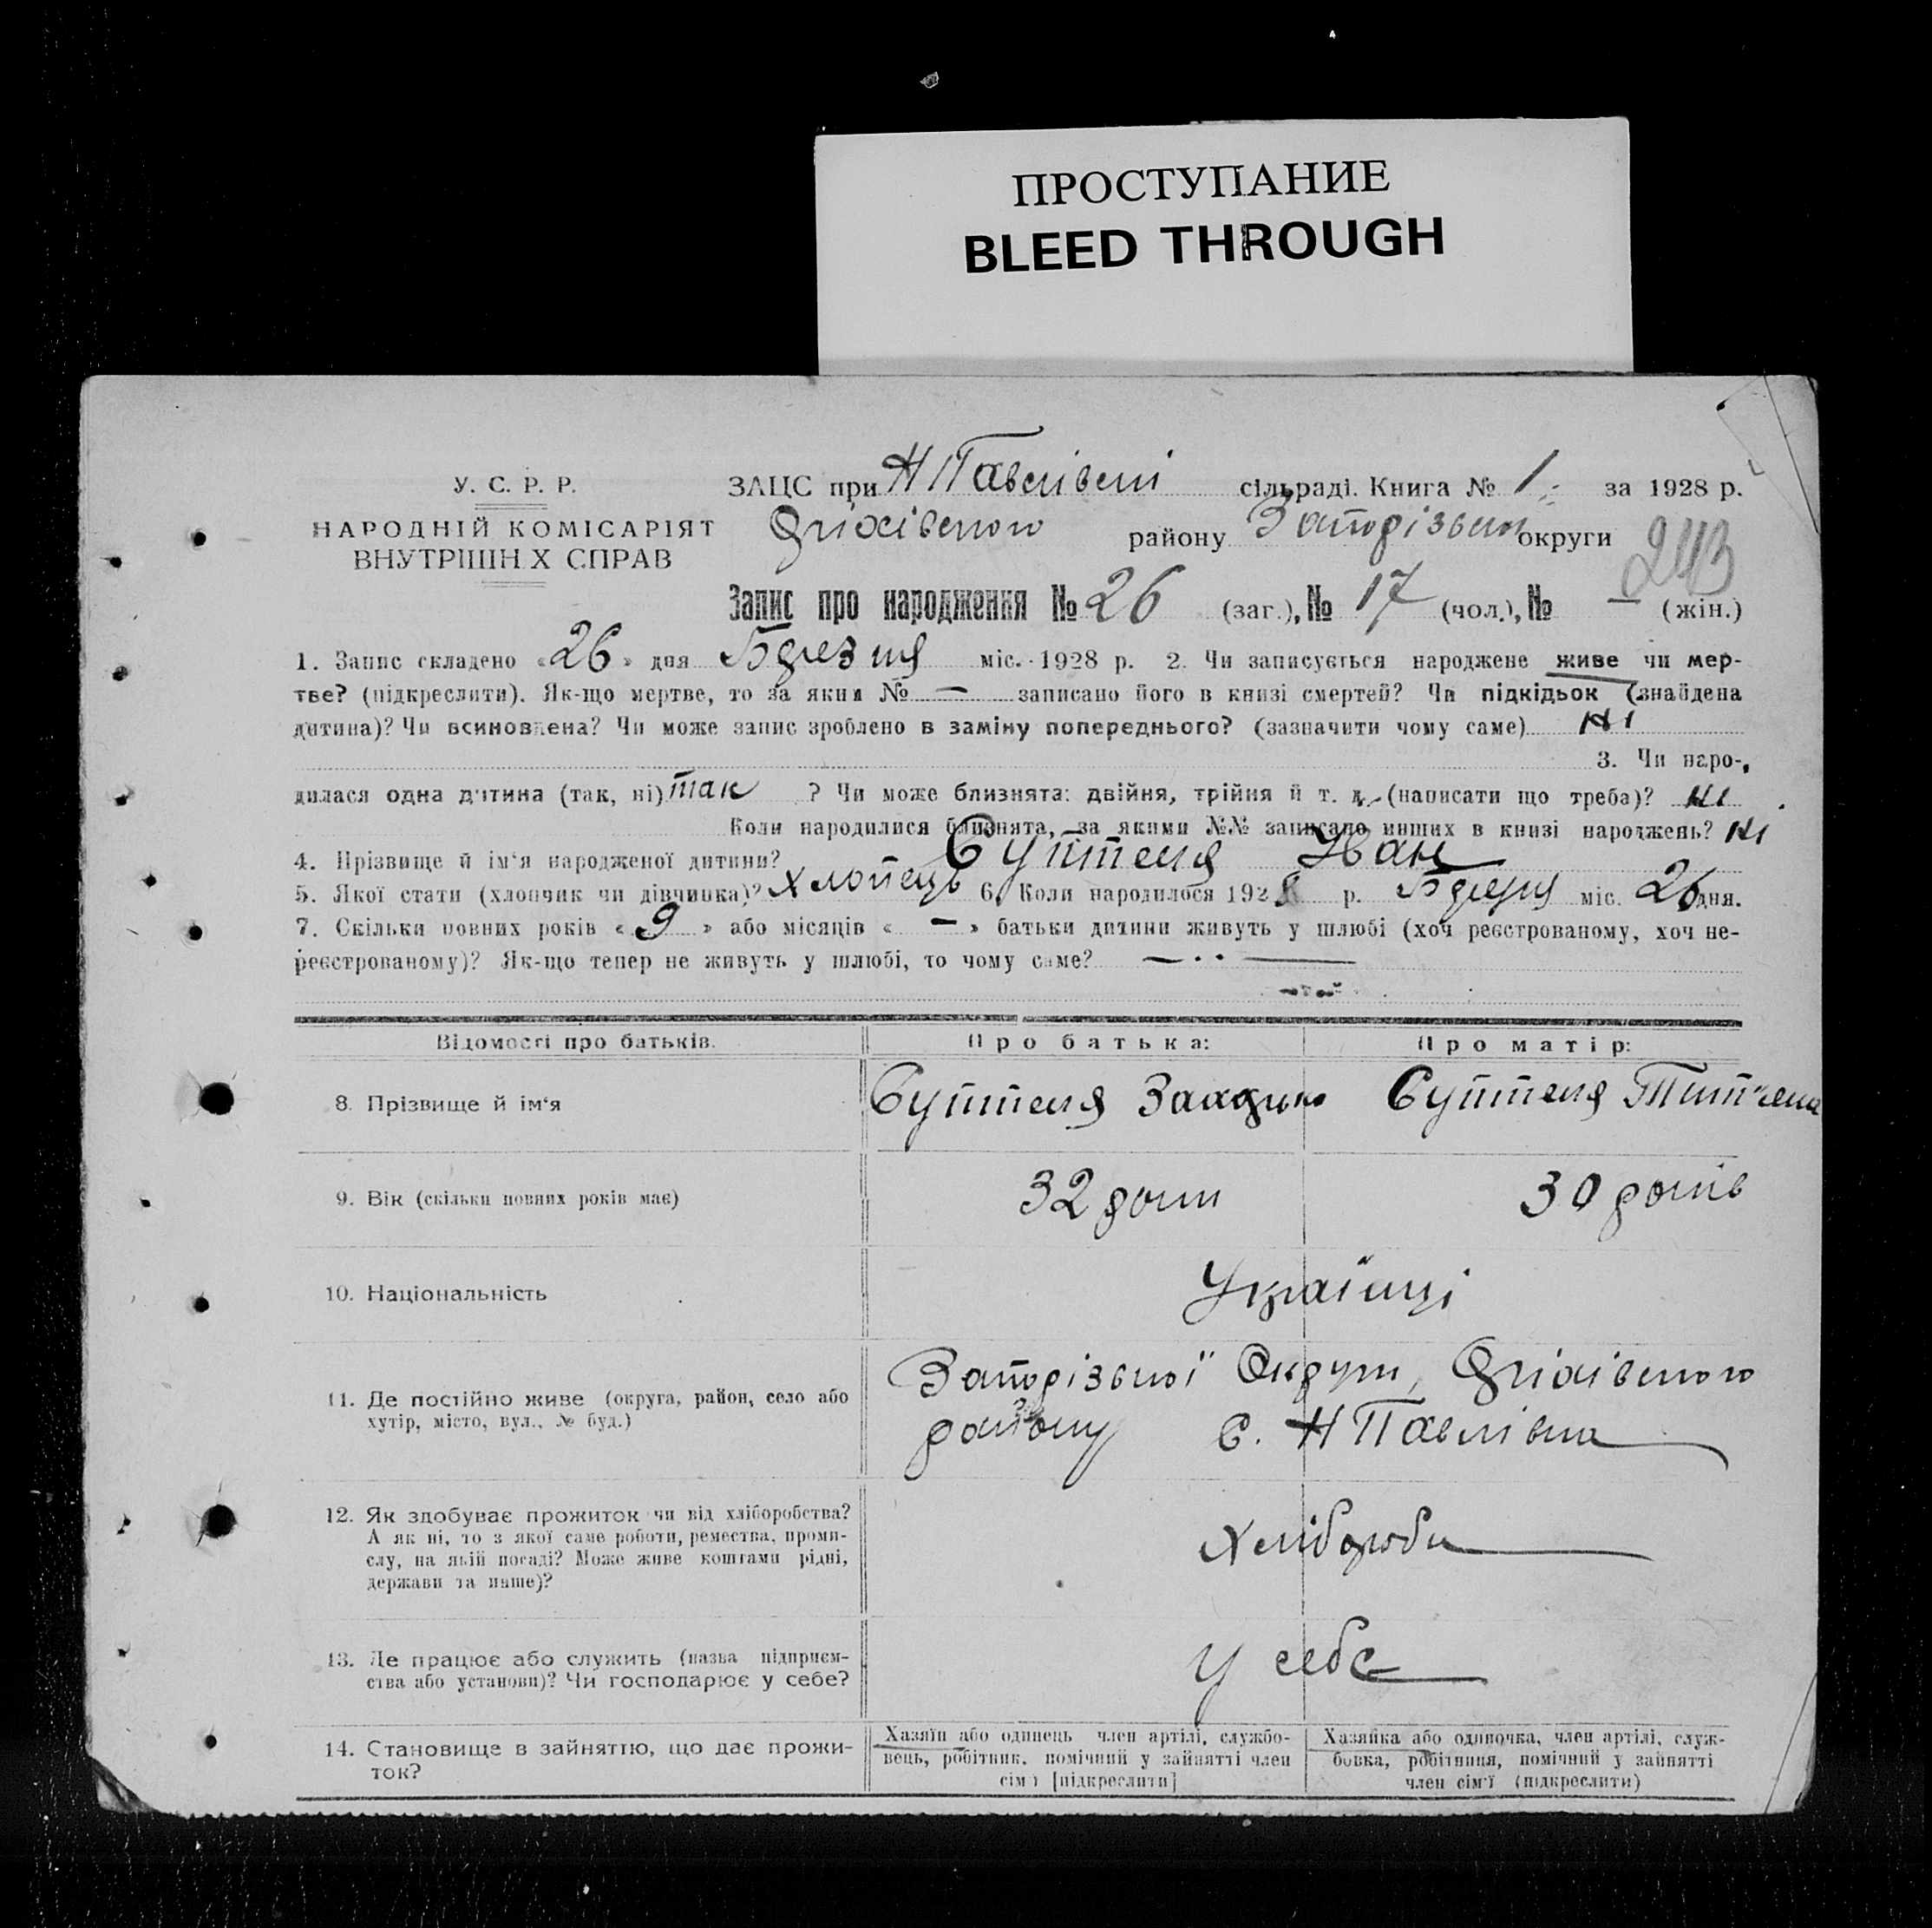 ПРОСТУПАНИЕ
BLEED THROUGH
У. С. Р. Р.
НАРОДНІЙ КОМІСАРІЯТ
ВНУТРІШН Х СПРАВ
ЗАЦС при Н Павлівскі сільраді. Книга № 1 за 1928 р.
Оріхівського району Запорізької округи
243
Запис про народження № 26 (заг.), № 17 (чол.), № — (жін.)
1. Запис складено «26» дня Березня міс. 1928 р. 2. Чи записується народжене живе чи мер-
тве? (підкреслити). Як-що мертве, то за яким № — записано його в книзі смертей? Чи підкідьок (знайдена
дитина)? Чи всиновлена? Чи може запис зроблено в заміну попереднього? (зазначити чому саме) Ні
3. Чи наро-
дилася одна дитина (так, ні) так ? Чи може близнята: двійня, трійня й т. д. (написати що треба)? Ні
Коли народилися близнята, за якими №№ записано инших в книзі народжень? Ні
4. Прізвище й ім'я народженої дитини? Іван
5. Якої стати (хлопчик чи дівчинка)? Хлопець 6. Коли народилося 1928 р. Березня міс. 26 дня.
7. Скільки повних років «9» або місяців «—» батьки дитини живуть у шлюбі (хоч реєстрованому, хоч не-
реєстрованому)? Як-що тепер не живуть у шлюбі, то чому саме? —
Відомості про батьків. Про батька: Про матір:
8. Прізвище й ім'я
9. Вік (скільки повних років має) 32 роки 30 років
10. Національність Українці
11. Де постійно живе (округа, район, село або
хутір, місто, вул., № буд.)
Запорізької Округи, Оріхівського
району С. Н Павлівка
12. Як здобуває прожиток чи від хліборобства?
А як ні, то з якої саме роботи, ремества, проми-
слу, на якій посаді? Може живе коштами рідні,
держави та инше)?
Хлібороби
13. Де працює або служить (назва підприєм-
ства або установи)? Чи господарює у себе?
У себе
14. Становище в зайняттю, що дає прожи-
ток?
Хазяїн або одинець член артілі, службо-
вець, робітник, помічний у зайнятті член
сім'ї [підкреслити]
Хазяйка або одиночка, член артілі, служ-
бовка, робітниця, помічний у зайнятті
член сім'ї (підкреслити)